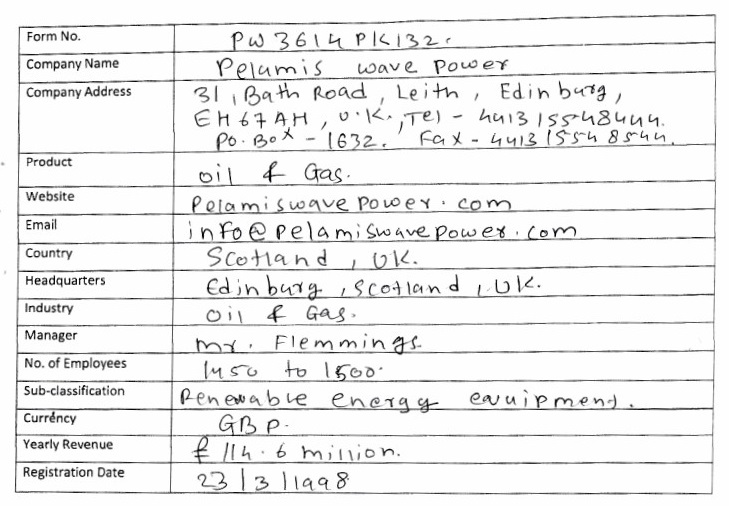 Form No. PW3614PK132.
Company Name Pelamis wave power
Company Address 31, Bath Road, Leith, Edinburg,
EH67AH, U.K., Tel - 441315548444.
PO. Box - 1632. Fax - 441315548544.
Product oil & Gas.
Website Pelamiswavepower.com
Email info@pelamiswavepower.com
Country Scotland, UK.
Headquarters Edinburg, Scotland, UK.
Industry oil & Gas.
Manager Mr. Flemmings.
No. of Employees 1450 to 1500.
Sub-classification Renewable energy equipment.
Currency GBP.
Yearly Revenue £ 114.6 million.
Registration Date 23/3/1998